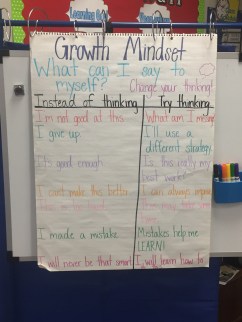 Growth Mindset
What can I say to
myself?
Change your thinking!
Instead of thinking
Try thinking
I'm not good at this
What am I missing
I give up.
I'll use a
different strategy.
It's good enough
Is this really my
best work?
I can't make this better
I can always improve
I made a mistake
Mistakes help me
LEARN!
I will never be that smart
I will learn how to